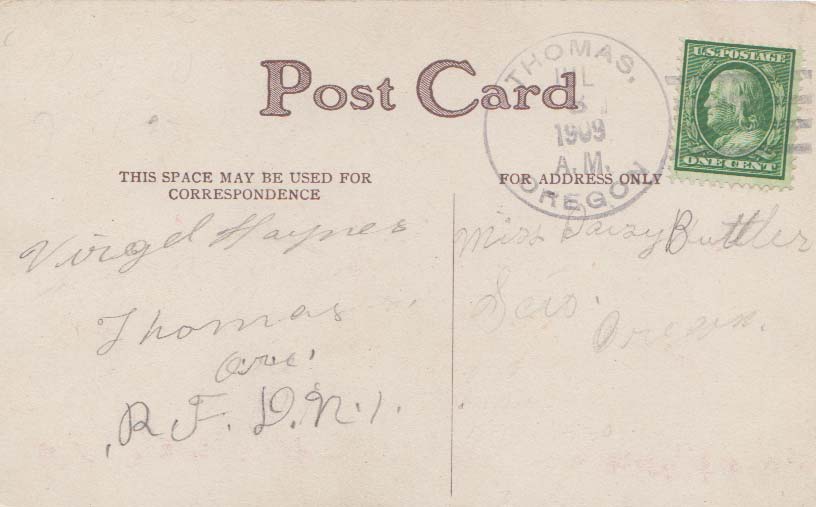 Post Card
THOMAS,
JUL
3
1909
A.M.
OREGON
U.S. POSTAGE
ONE CENT
THIS SPACE MAY BE USED FOR
CORRESPONDENCE
FOR ADDRESS ONLY
Virgel Haynes
Thomas
Ore.
R F. D. N. 1.
Miss Daisy Buttler
Scio.
Oregon.